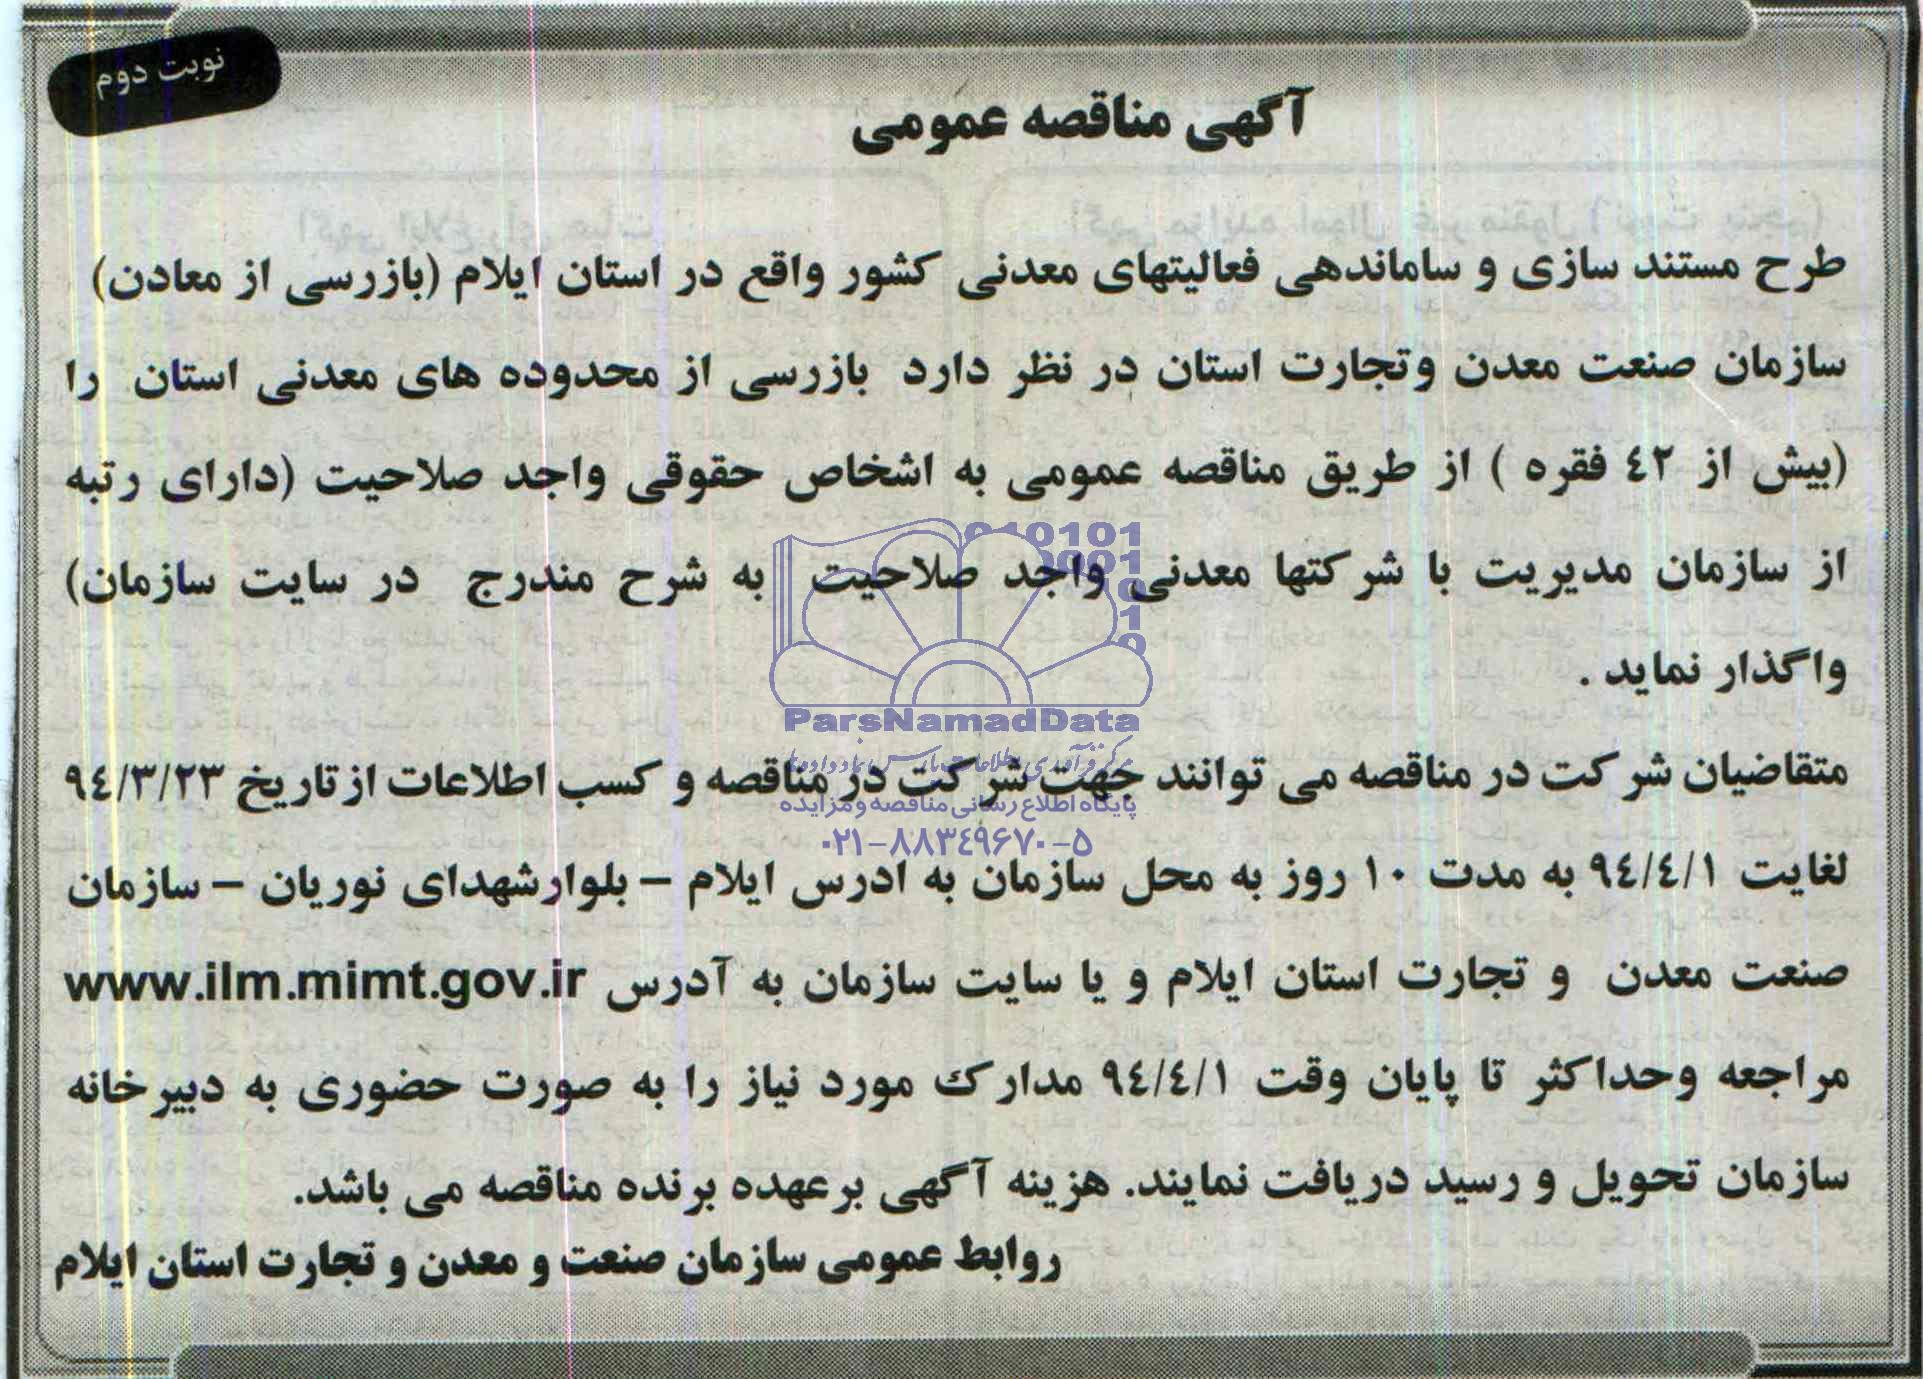 نوبت دوم
آگهی مناقصه عمومی
طرح مستند سازی و ساماندهی فعالیتهای معدنی کشور واقع در استان ایلام (بازرسی از معادن)
سازمان صنعت معدن وتجارت استان در نظر دارد بازرسی از محدوده های معدنی استان را
(بیش از ٤٢ فقره ) از طریق مناقصه عمومی به اشخاص حقوقی واجد صلاحیت (دارای رتبه
از سازمان مدیریت با شرکتها معدنی واجد صلاحیت به شرح مندرج در سایت سازمان)
واگذار نماید .
متقاضیان شرکت در مناقصه می توانند جهت شرکت در مناقصه و کسب اطلاعات از تاریخ ٩٤/٣/٢٣
لغایت ٩٤/٤/١ به مدت ١٠ روز به محل سازمان به ادرس ایلام – بلوارشهدای نوریان – سازمان
صنعت معدن و تجارت استان ایلام و یا سایت سازمان به آدرس www.ilm.mimt.gov.ir
مراجعه وحداکثر تا پایان وقت ٩٤/٤/١ مدارک مورد نیاز را به صورت حضوری به دبیرخانه
سازمان تحویل و رسید دریافت نمایند. هزینه آگهی برعهده برنده مناقصه می باشد.
روابط عمومی سازمان صنعت و معدن و تجارت استان ایلام
ParsNamadData
مرکز فرآوری اطلاعات پارس نماد داده‌ها
پایگاه اطلاع رسانی مناقصه و مزایده
۰۲۱-۸۸۳٤۹۶۷۰-۵